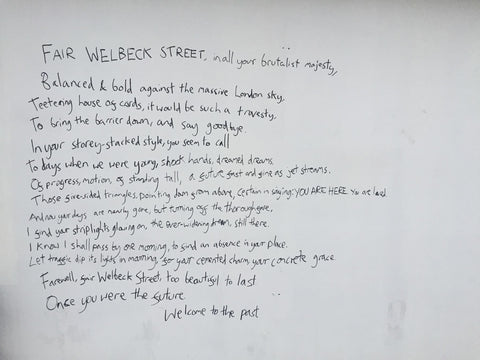 FAIR WELBECK STREET, in all your brutalist majesty,
Balanced & bold against the massive London sky,
Teetering house of cards, it would be such a travesty,
To bring the barrier down, and say goodbye.
In your storey-stacked style, you seem to call
To days when we were young, shook hands, dreamed dreams
Of progress, motion, of standing tall, a future fast and fine as jet streams.
Those five-sided triangles, pointing down from above, certain in saying: YOU ARE HERE You are loved
And now your days are nearly gone, but turning off the thoroughfare,
I find your striplights glowing on, the ever-widening still there.
I know I shall pass by one morning, to find an absence in your place.
Let traffic dip its lights in mourning, for your cemented charm, your concrete grace
Farewell, fair Welbeck Street, too beautiful to last
Once you were the future
Welcome to the past